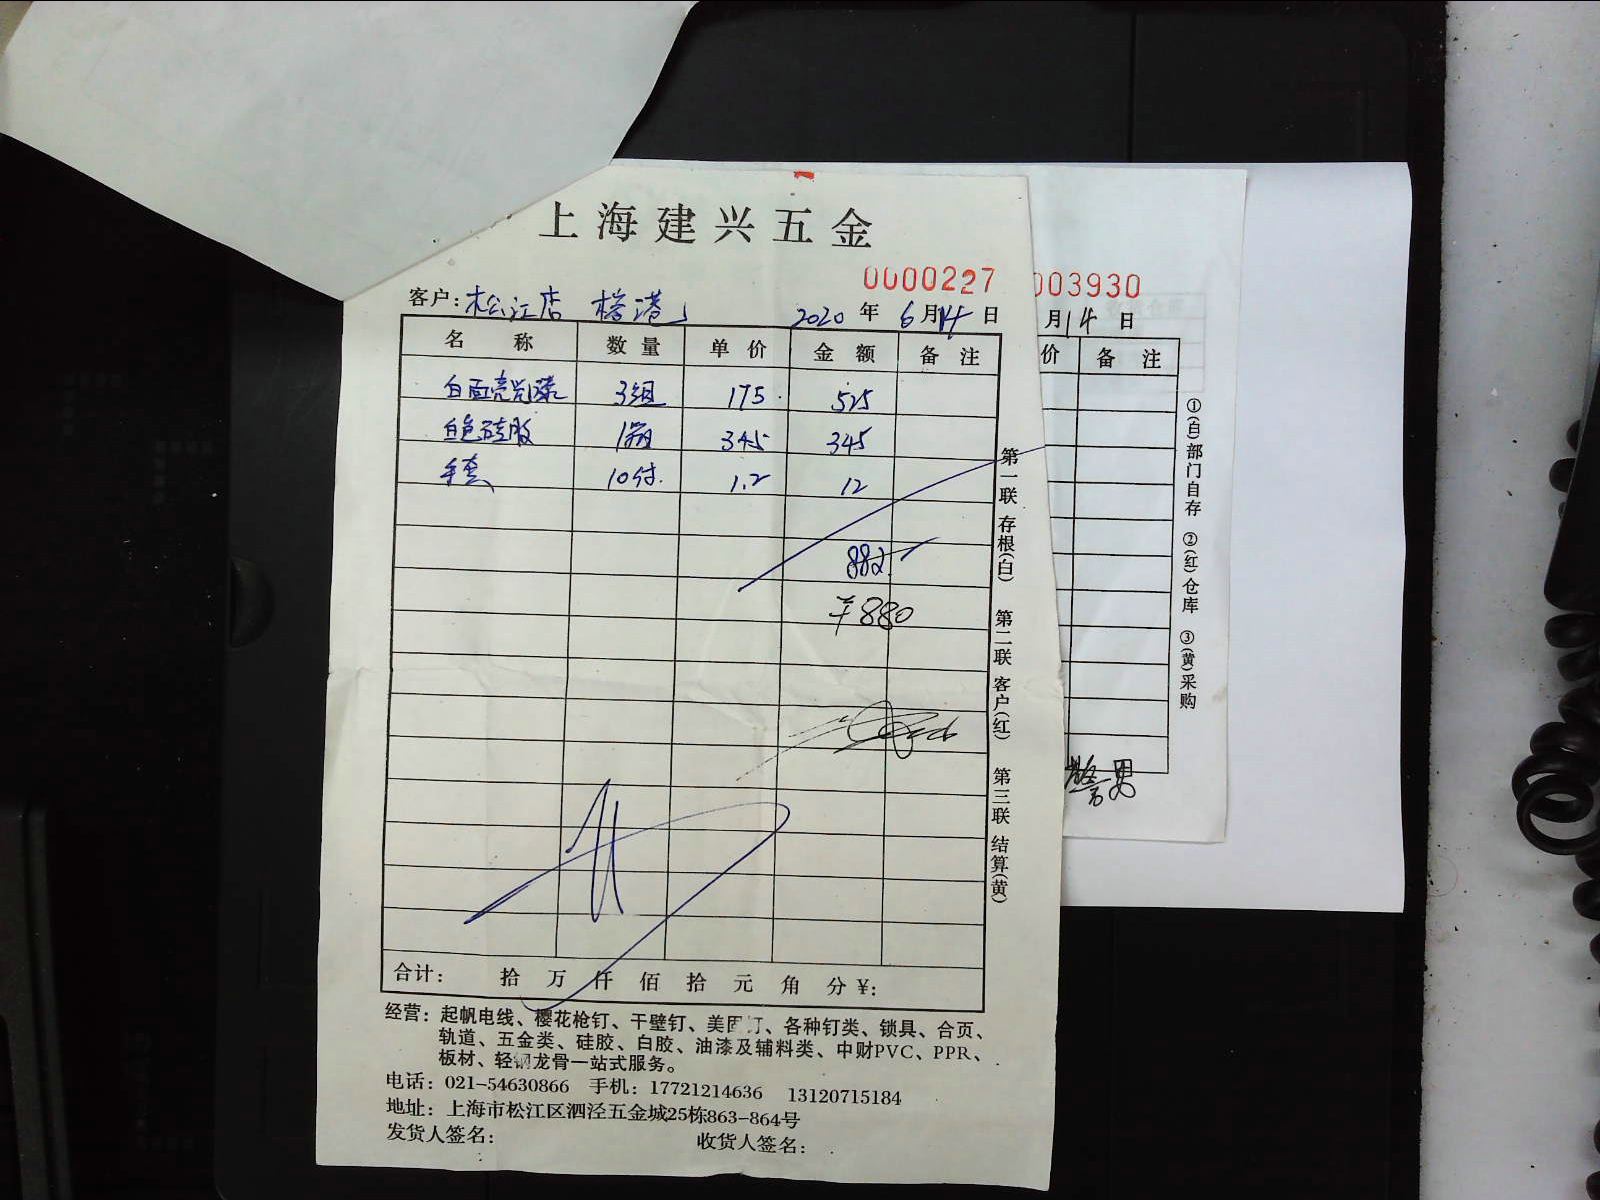 上海建兴五金
0000227
客户: 松江店 2020年6月14日
名称 数量 单价 金额 备注
白面亮光漆 3组 175 525
白色硅胶 1箱 345 345
手套 10付 1.2 12
882
¥880
第一联 存根(白) 第二联 客户(红) 第三联 结算(黄)
合计: 拾 万 仟 佰 拾 元 角 分 ¥:
经营: 起帆电线、樱花枪钉、干壁钉、美固钉、各种钉类、锁具、合页、
轨道、五金类、硅胶、白胶、油漆及辅料类、中财PVC、PPR、
板材、轻钢龙骨一站式服务。
电话: 021-54630866 手机: 17721214636 13120715184
地址: 上海市松江区泗泾五金城25栋863-864号
发货人签名: 收货人签名:
003930
月14日
价 备注
①(白)部门自存 ②(红)仓库 ③(黄)采购